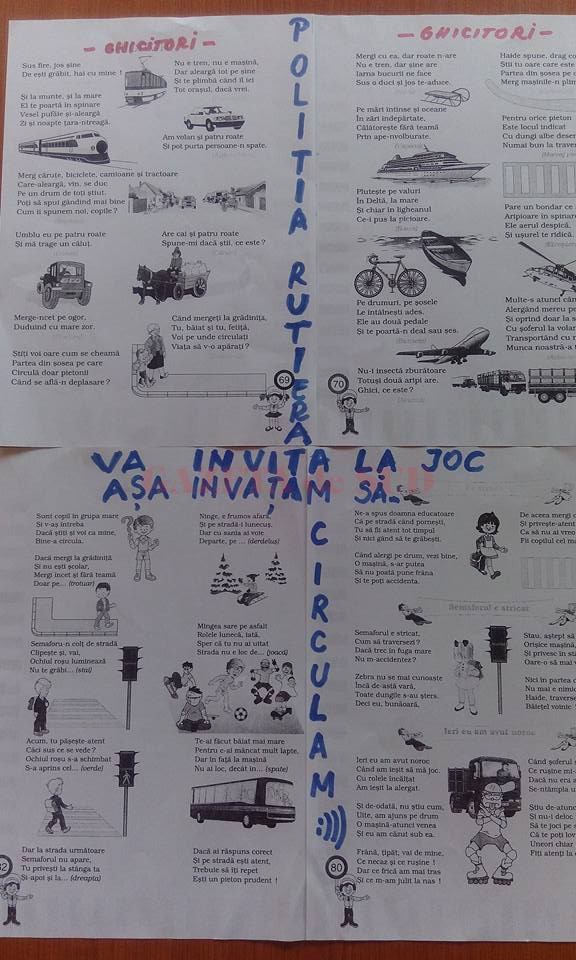 - GHICITORI -
Sus fire, jos șine
De ești grăbit, hai cu mine !
Nu e tren, nu e mașină,
Dar aleargă tot pe șine
Și te plimbă când îi zici
Tot orașul, dacă vrei.
Și la munte, și la mare
El te poartă în spinare
Vesel pufăie și-aleargă
Zi și noapte țara-ntreagă.
Am volan și patru roate
Și pot purta persoane-n spate.
Merg căruțe, biciclete, camioane și tractoare
Care-aleargă, vin, se duc
Pe un drum de toți știut.
Poți să spui gândind mai bine
Cum îi spunem noi, copile ?
Umblu eu pe patru roate
Și mă trage un căluț.
Are cai și patru roate
Spune-mi dacă știi, ce este ?
Merge-ncet pe ogor,
Duduind cu mare zor.
Când mergeți la grădiniță,
Tu, băiat și tu, fetiță,
Voi pe unde circulați
Viața să v-o apărați ?
Știți voi oare cum se cheamă
Partea din șosea pe care
Circulă doar pietonii
Când se află-n deplasare ?
69
POLITIA RUTIERA
- GHICITORI -
Mergi cu ea, dar roate n-are
Nu e tren, dar șine are
Iarna bucurii ne face
Sus o duci și jos te-aduce.
Haide spune, drag co
Știi tu oare care este
Partea din șosea pe c
Merg mașinile-n plin
Pe mări întinse și oceane
În zări îndepărtate,
Călătorește fără teamă
Prin ape-nvolburate.
Pentru orice pieton
Este locul indicat
Cu dungi albe desen
Numai bun la traver
Plutește pe valuri
În Deltă, la mare
Și chiar în ligheanul
Ce-i pus la picioare.
Pare un bondar ce
Aripioare în spinar
Ele aerul despică,
Și ușurel te ridică.
Pe drumuri, pe șosele
Le întâlnești ades.
Ele au două pedale
Și te poartă-n deal sau șes.
Multe-s atunci când
Alergând mereu pe
Și oprind doar la s
Cu șoferul la volan
Transportând cu r
Munca noastră-a
Nu-i insectă zburătoare
Totuși două aripi are.
Ghici, ce este ?
70
VA INVITA LA JOC
AȘA INVAȚAM SĂ..
CIRCULAM :)))
Sunt copil în grupa mare
Și v-aș întreba
Dacă știți și voi ca mine,
Bine a circula.
Dacă mergi la grădiniță
Și nu ești școlar,
Mergi încet și fără teamă
Doar pe... (trotuar)
Ninge, e frumos afară,
Și pe stradă-i lunecuș,
Dar cu sania ai voie
Departe, pe ... (derdeluș)
Semaforu-n colț de stradă
Clipește și, vai,
Ochiul roșu luminează
Nu te grăbi... (stai)
Mingea sare pe asfalt
Rolele lunecă, iată,
Sper că tu nu ai uitat
Strada nu e loc de... (joacă)
Acum, tu pășește-atent
Căci sus ce se vede ?
Ochiul roșu s-a schimbat
S-a aprins cel... (verde)
Te-ai făcut băiat mai mare
Pentru c-ai mâncat mult lapte,
Dar în față la mașină
Nu ai loc, decât în... (spate)
Dar la strada următoare
Semaforul nu apare,
Tu privești la stânga ta
Și-apoi și la... (dreapta)
Dacă ai răspuns corect
Și pe stradă ești atent,
Trebuie să îți repet
Ești un pieton prudent !
Ne-a spus doamna educatoare
Că pe stradă când pornești,
Tu să fii atent tot timpul
Și nici gând să te grăbești.
De aceea mergi c
Și privește-atent
Ca să nu ai vreo
Fii copilul cel m
Când alergi pe drum, vezi bine,
O mașină, s-ar putea
Să nu poată pune frâna
Și te poți accidenta.
Semaforul e stricat
Semaforul e stricat,
Cum să traversez ?
Dacă trec în fuga mare
Nu m-accidentez ?
Stau, aștept să
Orișice mașină,
Și privesc în stâ
Oare-o să mai v
Zebra nu se mai cunoaște
Încă de-astă vară,
Toate dungile s-au șters.
Deci eu, bunăoară,
Nici în partea c
Nu mai e nimic
Haide, traverse
Băiețel voinic
Ieri eu am avut noroc
Ieri eu am avut noroc
Când am ieșit să mă joc.
Cu rolele încălțat
Am ieșit la alergat.
Când șoferul s
Ce rușine mi-
Dacă nu era a
Se-ntâmpla u
Și de-odată, nu știu cum,
Uite, am ajuns pe drum
O mașină-atunci venea
Și eu am căzut sub ea.
Știu de-atunc
Și nu-i deloc
Să te joci pe s
Că te poți lov
Uneori chiar
Fiți atenți la
Frână, țipăt, vai de mine,
Ce necaz și ce rușine !
Dar ce frică am mai tras
Și ce m-am julit la nas !
80